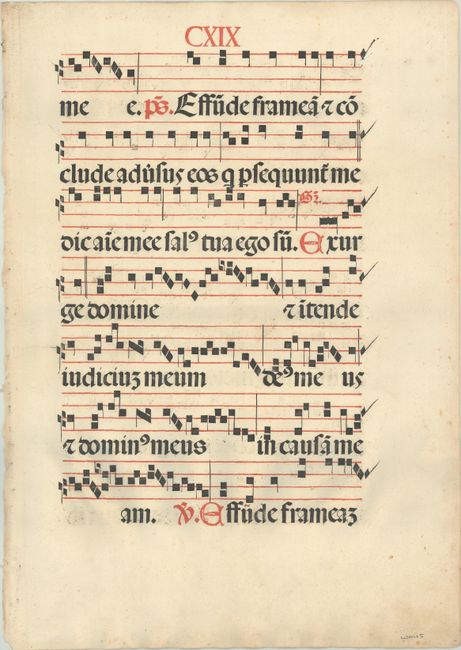 CXIX
me e. ps. Effūde frameā ⁊ cō
clude aduˀsus eos q̄ ꝑsequunt̄ me
dic aīe mee salꝰ tua ego sū. Gr. Exur
ge domine ⁊ ītende
iudiciuʒ meum deꝰ me us
⁊ dominꝰ meus in causā me
am. ℣. Effūde frameaʒ